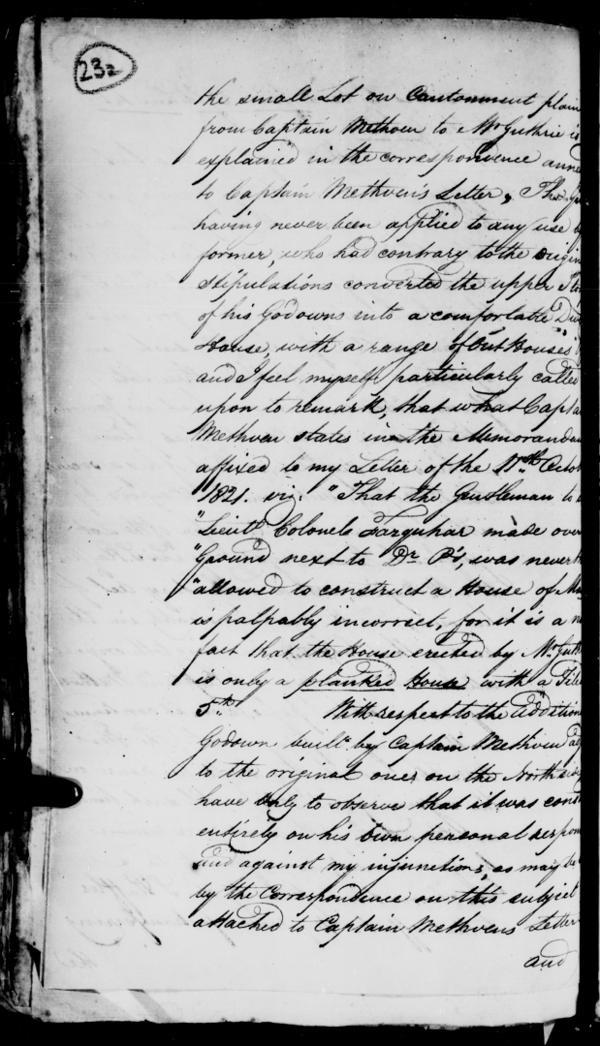 232
the small Lot on Cantonment plain
from Captain Methven to Mr Guthrie is
explained in the correspondence anne
to Captain Methven's Letter, The Gr
having never been applied to any use b
former, who had contrary to the origin
stipulations converted the upper Sto
of his Godowns into a comfortable Dw
House, with a range of "Out Houses"
and I feel myself particularly called
upon to remark, that what Capta
Methven states in the Memorandu
affixed to my Letter of the 11th Octob
1821. viz. "That the Gentleman to
"Lieut. Colonel Farquhar made over
"Ground next to Dr. P's, was never
"allowed to construct a House of Ma
is palpably incorrect, for it is a
fact that the House erected by Mr Guth
is only a planked House with a Tile
5th. With respect to the addition
Godown built by Captain Methven ad
to the original ones on the North side
have only to observe that it was const
entirely on his own personal respon
and against my injunctions, as may be
by the Correspondence on this subject
attached to Captain Methvens Letter
and